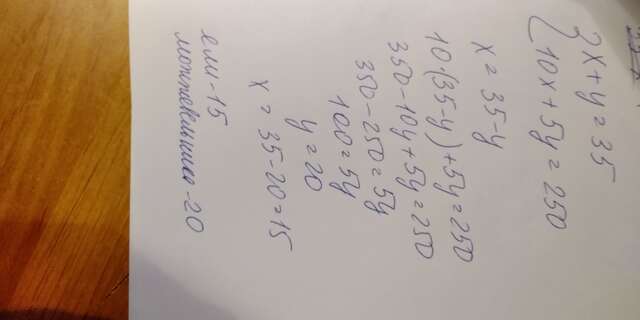 { x + y = 35
10x + 5y = 250
x = 35 - y
10(35-y) + 5y = 250
350 - 10y + 5y = 250
350 - 250 = 5y
100 = 5y
y = 20
x = 35 - 20 = 15
ели - 15
можжевельника - 20